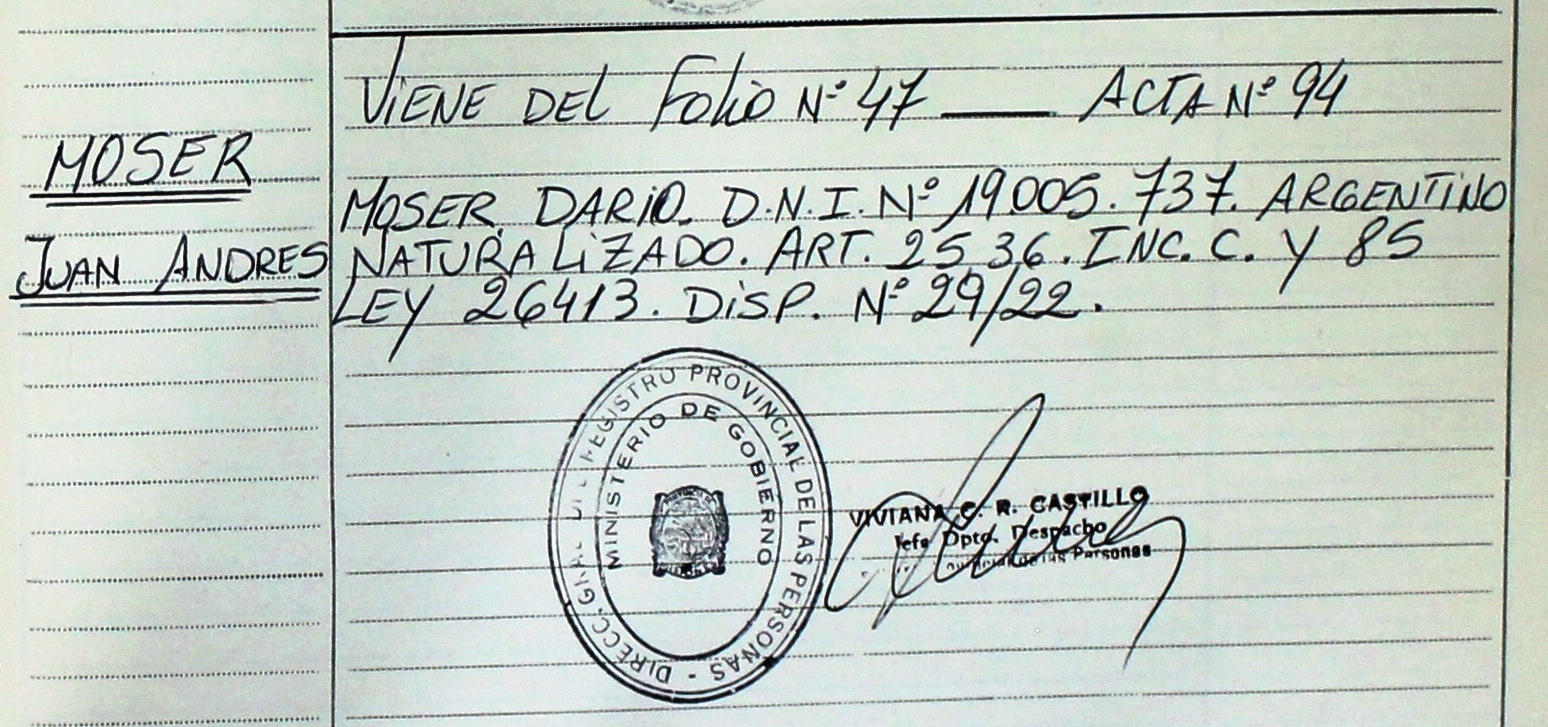 MOSER
JUAN ANDRES
VIENE DEL FOLIO Nº 47 —— ACTA Nº 94
MOSER, DARIO. D.N.I. Nº 19.005.737. ARGENTINO
NATURALIZADO. ART. 25 36. INC. C. Y 85
LEY 26413. DISP. Nº 29/22.
DIRECC. GRAL. DEL REGISTRO PROVINCIAL DE LAS PERSONAS -
MINISTERIO DE GOBIERNO
VIVIANA C. R. CASTILLO
Jefa Dpto. Despacho
de las Personas